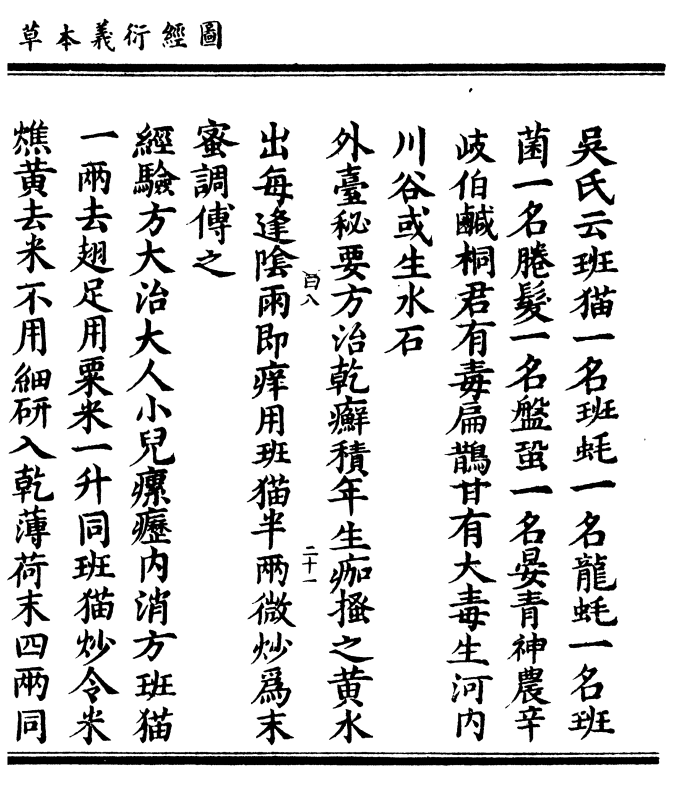 圖經衍義本草
吳氏云班猫一名班蚝一名龍蚝一名班
菌一名腃髮一名盤蛩一名晏青神農辛
岐伯鹹桐君有毒扁鵲甘有大毒生河内
川谷或生水石
外臺秘要方治乾癬積年生痂搔之黄水
百八
二十一
出每逢隂雨即痒用班猫半兩微炒爲末
蜜調傅之
經驗方大治大人小兒瘰癧内消方班猫
一兩去翅足用粟米一升同班猫炒令米
燋黄去米不用細研入乾薄荷末四兩同